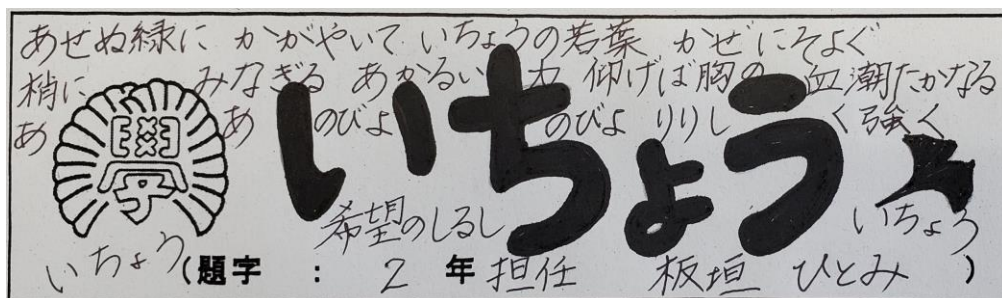 あせぬ緑に かがやいて いちょうの若葉 かぜにそよぐ
梢に みなぎる あかるい 力 仰げば胸の 血潮たかなる
あ あ のびよ のびよ りりし く強く
學
いちょう
希望のしるし いちょう
いちょう (題字 : 2 年 担任 板垣 ひとみ )